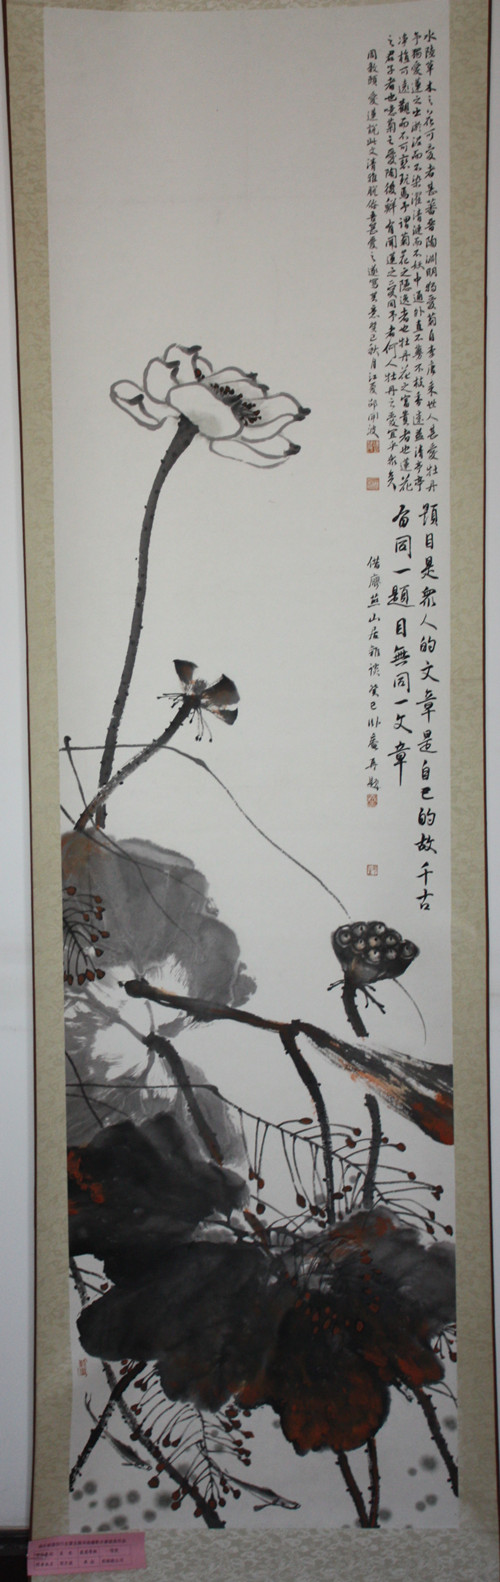 水陸草木之花可愛者甚蕃晉陶淵明独愛菊自李唐来世人甚愛牡丹
予獨愛蓮之出淤泥而不染濯清漣而不妖中通外直不蔓不枝香遠益清亭亭
净植可遠觀而不可褻玩焉予謂菊花之隱逸者也牡丹花之富貴者也蓮花
之君子者也噫菊之愛陶後鮮有聞蓮之愛同予者何人牡丹之愛宜乎衆矣
周敦頤愛蓮説此文清雅脱俗吾甚愛之遂寫其意癸巳秋月江夏
題目是衆人的文章是自己的故千古
有同一題目無同一文章
借廖燕山居雜談癸巳 再題